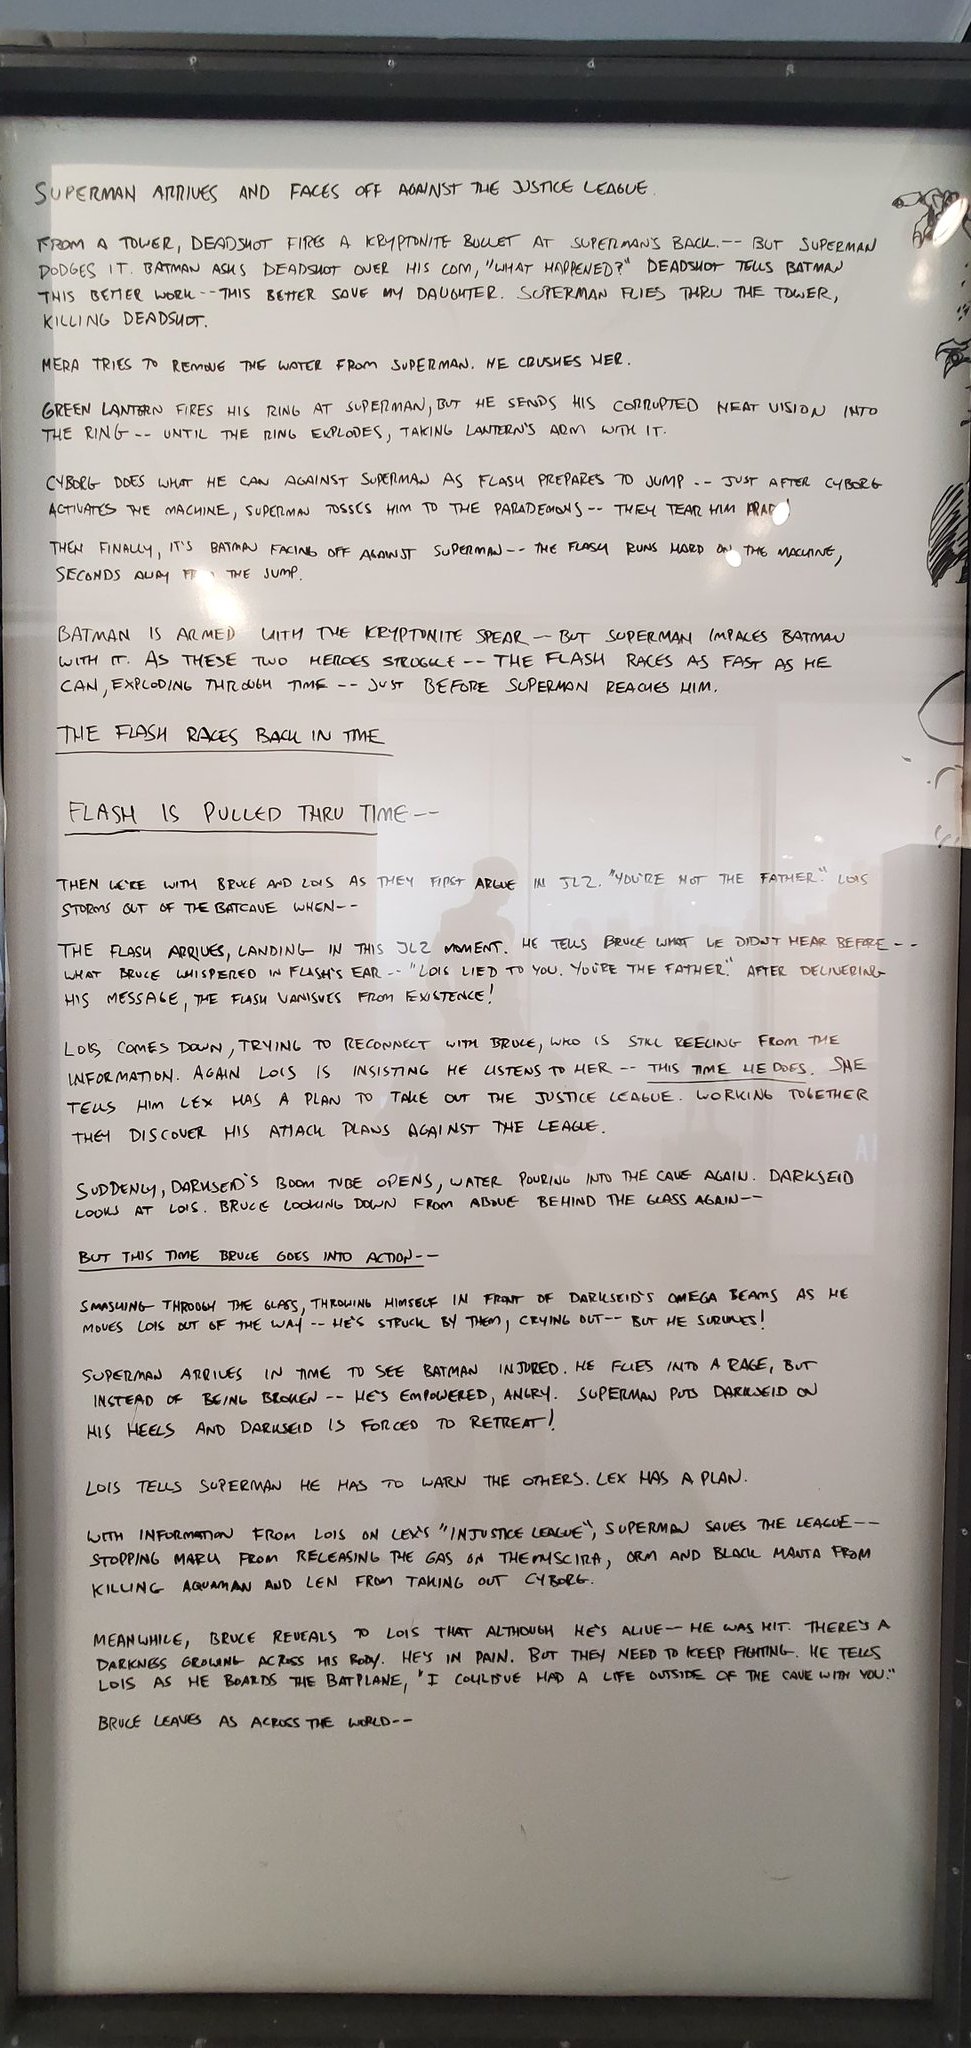 SUPERMAN ARRIVES AND FACES OFF AGAINST THE JUSTICE LEAGUE.
FROM A TOWER, DEADSHOT FIRES A KRYPTONITE BULLET AT SUPERMAN'S BACK.-- BUT SUPERMAN
DODGES IT. BATMAN ASKS DEADSHOT OVER HIS COM, "WHAT HAPPENED?" DEADSHOT TELLS BATMAN
THIS BETTER WORK-- THIS BETTER SAVE MY DAUGHTER. SUPERMAN FLIES THRU THE TOWER,
KILLING DEADSHOT.
MERA TRIES TO REMOVE THE WATER FROM SUPERMAN. HE CRUSHES HER.
GREEN LANTERN FIRES HIS RING AT SUPERMAN, BUT HE SENDS HIS CORRUPTED HEAT VISION INTO
THE RING-- UNTIL THE RING EXPLODES, TAKING LANTERN'S ARM WITH IT.
CYBORG DOES WHAT HE CAN AGAINST SUPERMAN AS FLASH PREPARES TO JUMP -- JUST AFTER CYBORG
ACTIVATES THE MACHINE, SUPERMAN TOSSES HIM TO THE PARADEMONS-- THEY TEAR HIM APART!
THEN FINALLY, IT'S BATMAN FACING OFF AGAINST SUPERMAN-- THE FLASH RUNS HARD ON THE MACHINE,
SECONDS AWAY FROM THE JUMP.
BATMAN IS ARMED WITH THE KRYPTONITE SPEAR-- BUT SUPERMAN IMPALES BATMAN
WITH IT. AS THESE TWO HEROES STRUGGLE-- THE FLASH RACES AS FAST AS HE
CAN, EXPLODING THROUGH TIME-- JUST BEFORE SUPERMAN REACHES HIM.
THE FLASH RACES BACK IN TIME
FLASH IS PULLED THRU TIME--
THEN WE'RE WITH BRUCE AND LOIS AS THEY FIRST ARGUE IN JL2. "YOU'RE NOT THE FATHER." LOIS
STORMS OUT OF THE BATCAVE WHEN--
THE FLASH ARRIVES, LANDING IN THIS JL2 MOMENT. HE TELLS BRUCE WHAT WE DIDN'T HEAR BEFORE--
WHAT BRUCE WHISPERED IN FLASH'S EAR-- "LOIS LIED TO YOU. YOU'RE THE FATHER." AFTER DELIVERING
HIS MESSAGE, THE FLASH VANISHES FROM EXISTENCE!
LOIS COMES DOWN, TRYING TO RECONNECT WITH BRUCE, WHO IS STILL REELING FROM THE
INFORMATION. AGAIN LOIS IS INSISTING HE LISTENS TO HER-- THIS TIME HE DOES. SHE
TELLS HIM LEX HAS A PLAN TO TAKE OUT THE JUSTICE LEAGUE. WORKING TOGETHER
THEY DISCOVER HIS ATTACK PLANS AGAINST THE LEAGUE.
SUDDENLY, DARKSEID'S BOOM TUBE OPENS, WATER POURING INTO THE CAVE AGAIN. DARKSEID
LOOKS AT LOIS. BRUCE LOOKING DOWN FROM ABOVE BEHIND THE GLASS AGAIN--
BUT THIS TIME BRUCE GOES INTO ACTION--
SMASHING THROUGH THE GLASS, THROWING HIMSELF IN FRONT OF DARKSEID'S OMEGA BEAMS AS HE
MOVES LOIS OUT OF THE WAY-- HE'S STRUCK BY THEM, CRYING OUT-- BUT HE SURVIVES!
SUPERMAN ARRIVES IN TIME TO SEE BATMAN INJURED. HE FLIES INTO A RAGE, BUT
INSTEAD OF BEING BROKEN-- HE'S EMPOWERED, ANGRY. SUPERMAN PUTS DARKSEID ON
HIS HEELS AND DARKSEID IS FORCED TO RETREAT!
LOIS TELLS SUPERMAN HE HAS TO WARN THE OTHERS. LEX HAS A PLAN.
WITH INFORMATION FROM LOIS ON LEX'S "INJUSTICE LEAGUE", SUPERMAN SAVES THE LEAGUE--
STOPPING MARU FROM RELEASING THE GAS ON THEMYSCIRA, ORM AND BLACK MANTA FROM
KILLING AQUAMAN AND LEN FROM TAKING OUT CYBORG.
MEANWHILE, BRUCE REVEALS TO LOIS THAT ALTHOUGH HE'S ALIVE-- HE WAS HIT. THERE'S A
DARKNESS GROWING ACROSS HIS BODY. HE'S IN PAIN. BUT THEY NEED TO KEEP FIGHTING. HE TELLS
LOIS AS HE BOARDS THE BATPLANE, "I COULD'VE HAD A LIFE OUTSIDE OF THE CAVE WITH YOU."
BRUCE LEAVES AS ACROSS THE WORLD--